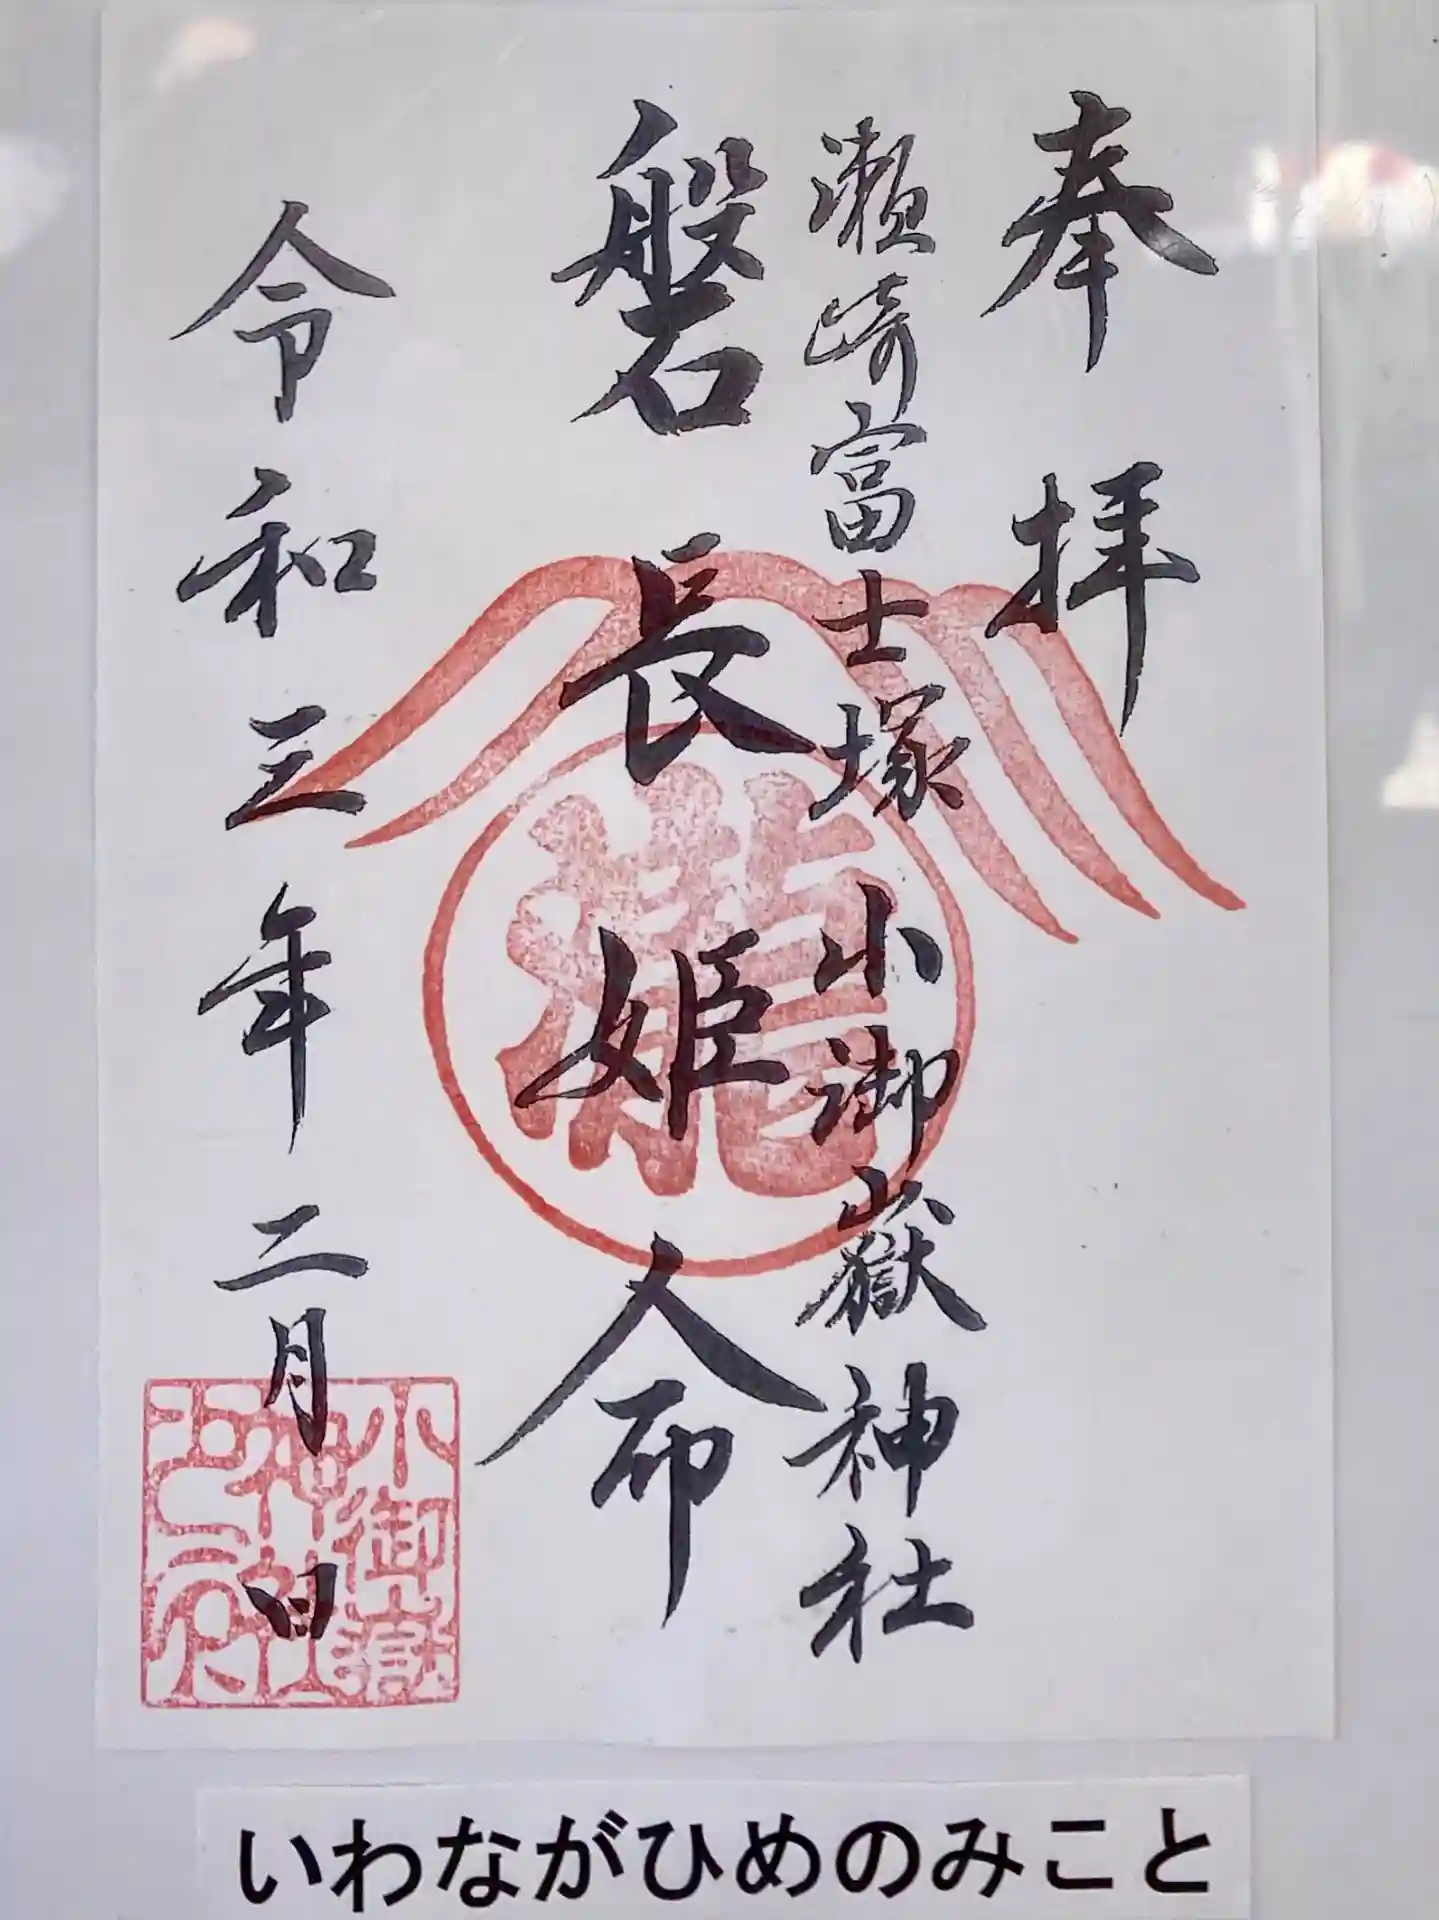 奉拝
瀬崎富士塚 小御嶽神社
磐長姫命
令和三年二月 日
小御嶽
神社
いわながひめのみこと